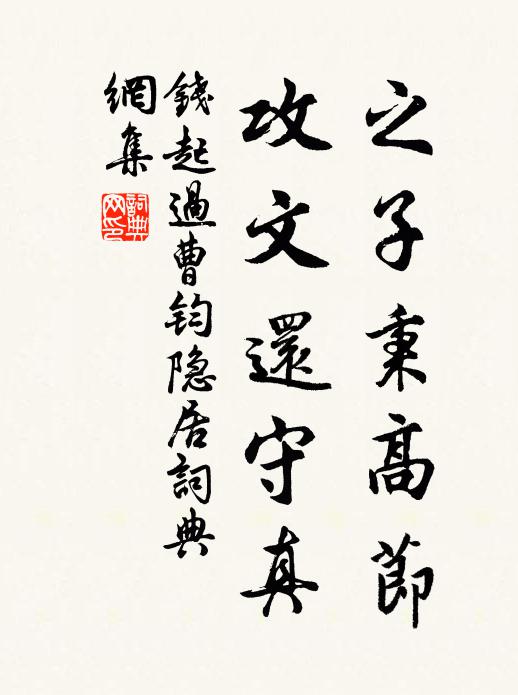 之子秉高節
攻文還守真
錢起過曹鈞隐居詞典
網集
詞典网印